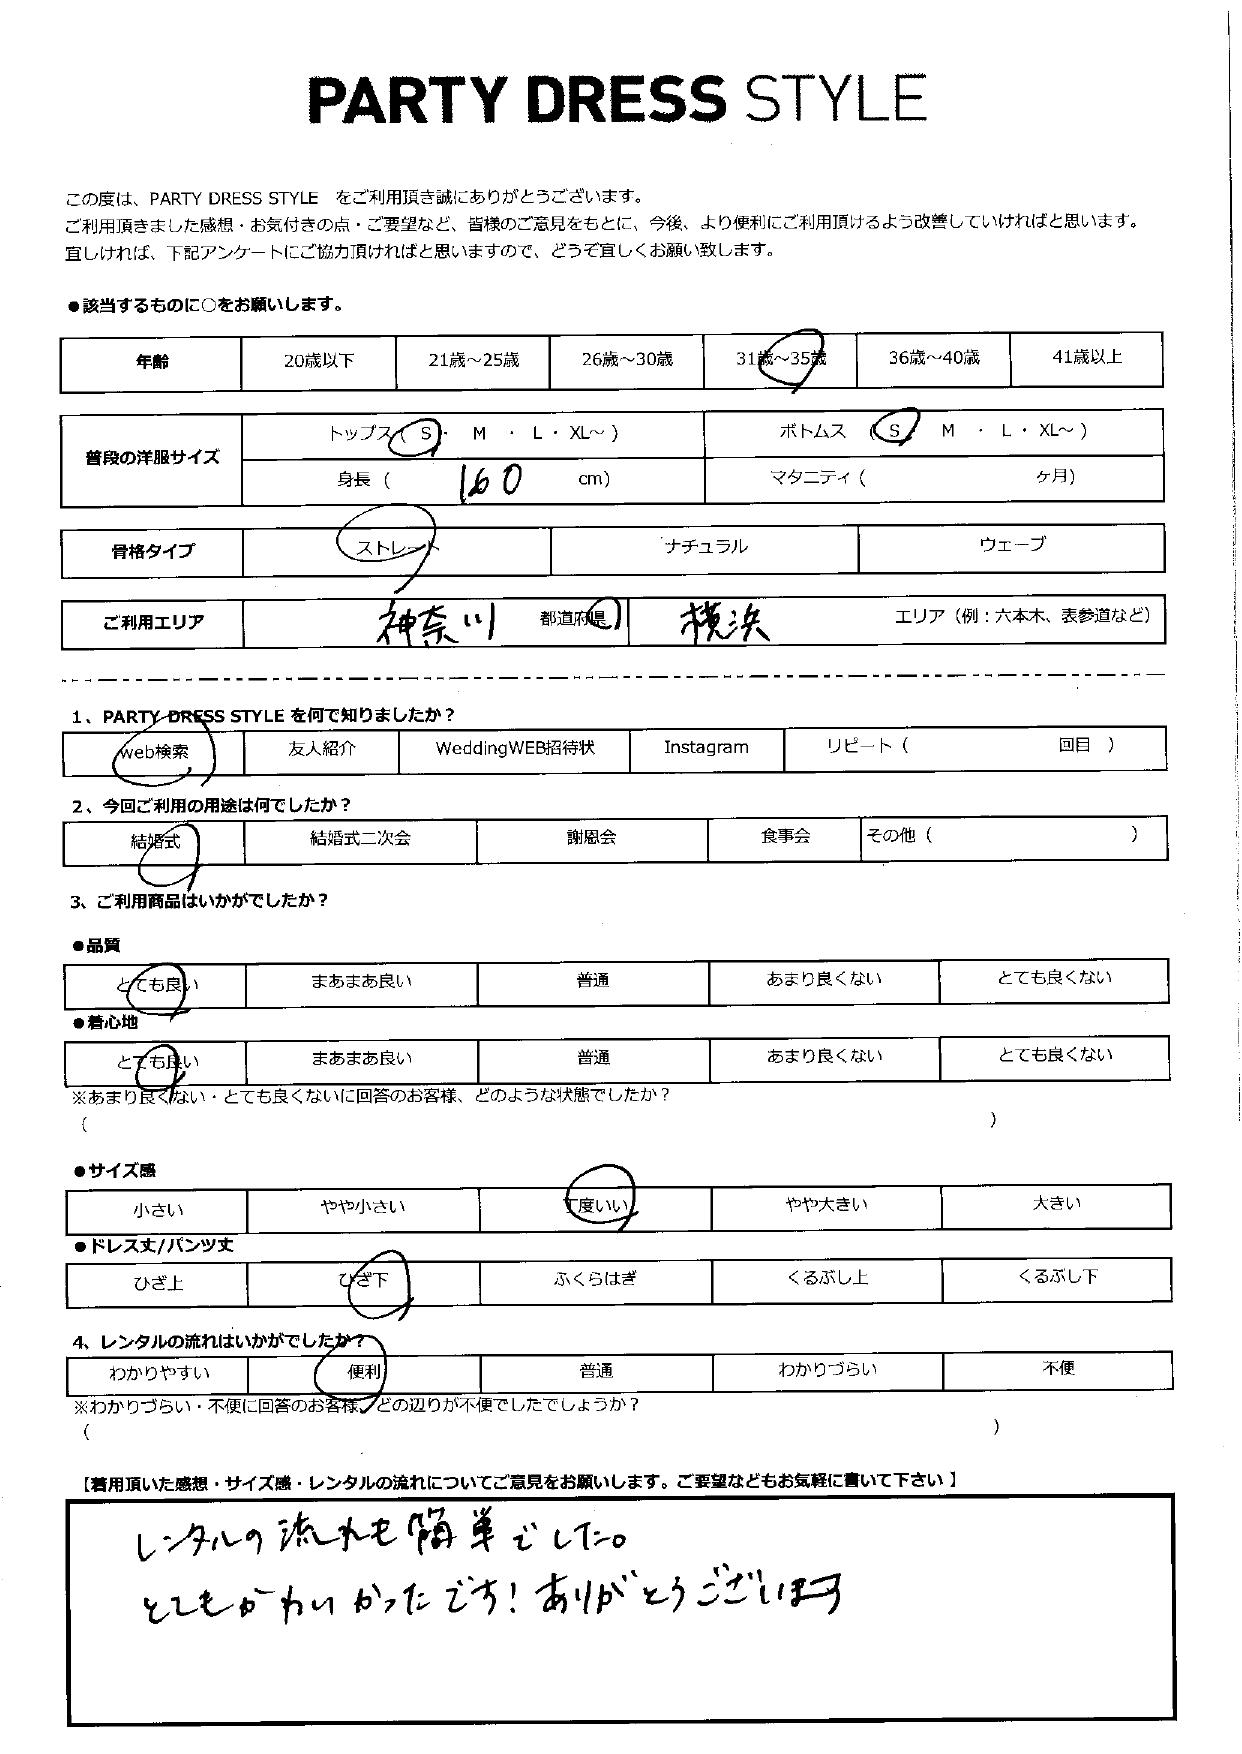 PARTY DRESS STYLE
この度は、PARTY DRESS STYLE をご利用頂き誠にありがとうございます。
ご利用頂きました感想・お気付きの点・ご要望など、皆様のご意見をもとに、今後、より便利にご利用頂けるよう改善していければと思います。
宜しければ、下記アンケートにご協力頂ければと思いますので、どうぞ宜しくお願い致します。
●該当するものに○をお願いします。
年齢 20歳以下 21歳～25歳 26歳～30歳 31歳～35歳 36歳～40歳 41歳以上
普段の洋服サイズ トップス ( S ・ M ・ L ・ XL～ ) ボトムス ( S ・ M ・ L ・ XL～ )
身長 ( 160 cm) マタニティ ( ケ月)
骨格タイプ ストレート ナチュラル ウェーブ
ご利用エリア 神奈川 都道府県 横浜 エリア（例：六本木、表参道など）
1、PARTY DRESS STYLE を何で知りましたか？
web検索 友人紹介 WeddingWEB招待状 Instagram リピート ( 回目 )
2、今回ご利用の用途は何でしたか？
結婚式 結婚式二次会 謝恩会 食事会 その他 ( )
3、ご利用商品はいかがでしたか？
●品質
とても良い まあまあ良い 普通 あまり良くない とても良くない
●着心地
とても良い まあまあ良い 普通 あまり良くない とても良くない
※あまり良くない・とても良くないに回答のお客様、どのような状態でしたか？
( )
●サイズ感
小さい やや小さい 丁度いい やや大きい 大きい
●ドレス丈/パンツ丈
ひざ上 ひざ下 ふくらはぎ くるぶし上 くるぶし下
4、レンタルの流れはいかがでしたか？
わかりやすい 便利 普通 わかりづらい 不便
※わかりづらい・不便に回答のお客様、どの辺りが不便でしたでしょうか？
( )
【着用頂いた感想・サイズ感・レンタルの流れについてご意見をお願いします。ご要望などもお気軽に書いて下さい】
レンタルの流れも簡単でした。
とてもかわいかったです！ありがとうございます